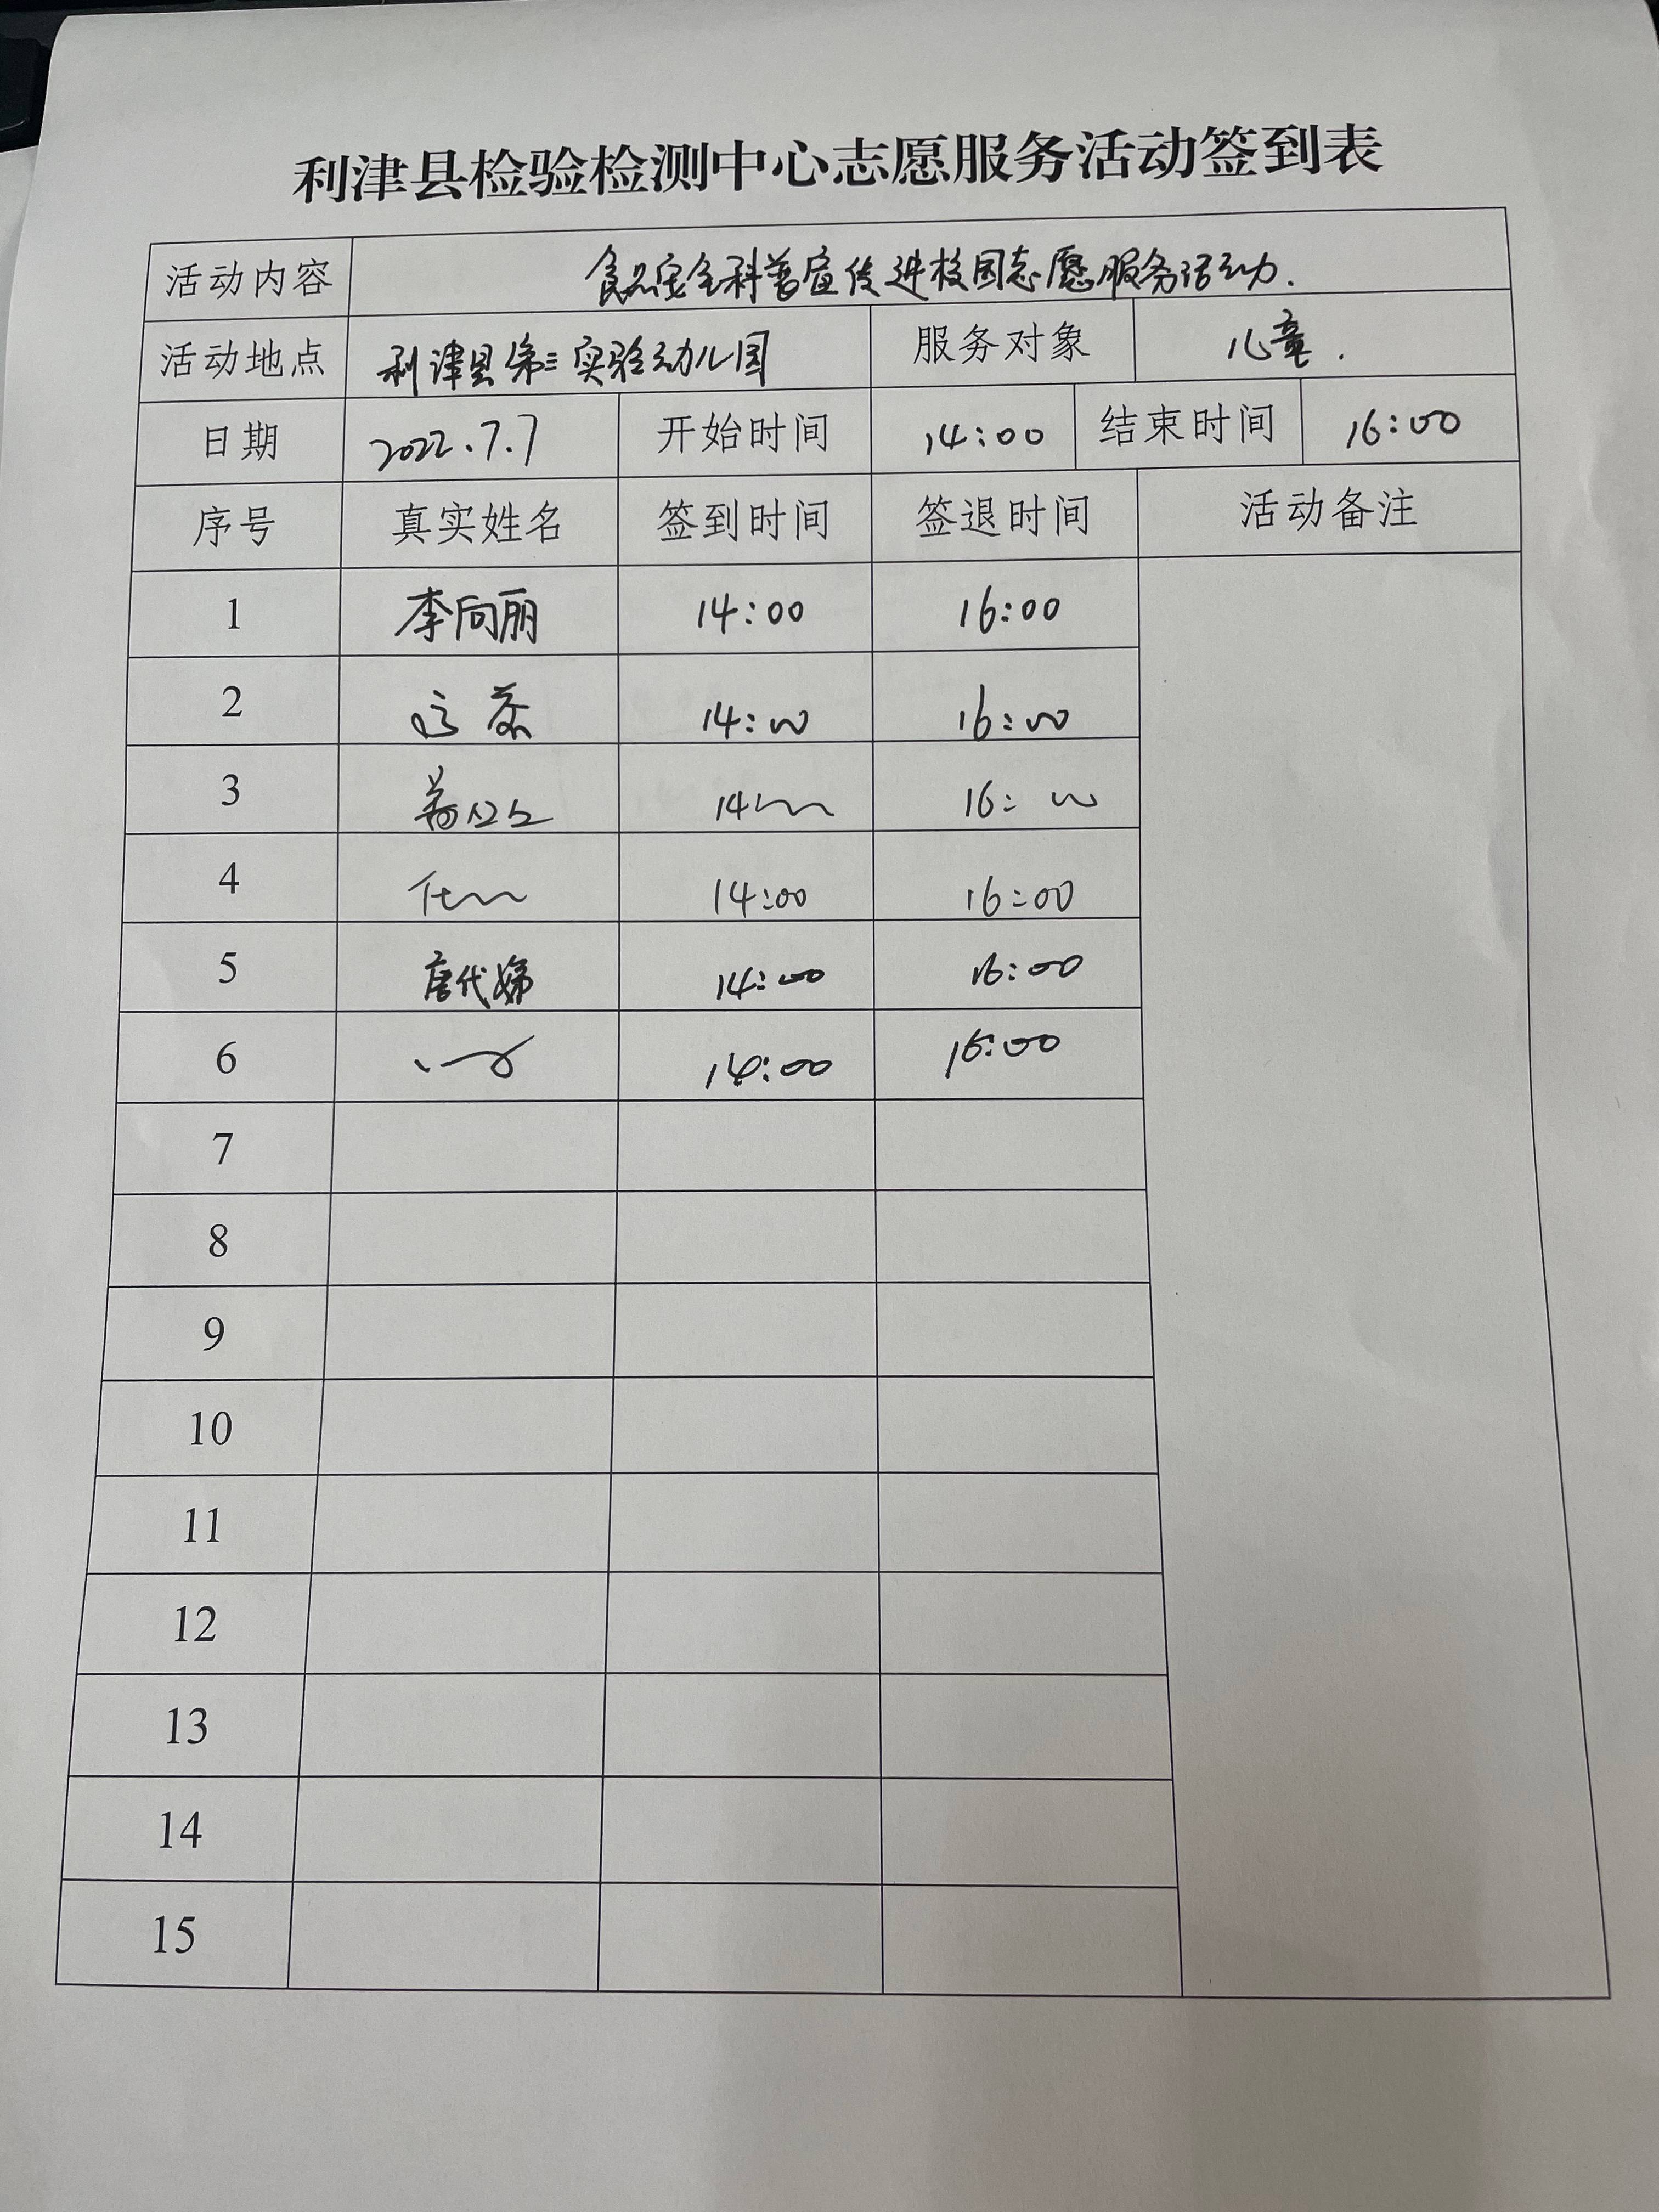 利津县检验检测中心志愿服务活动签到表
活动内容 食品安全科普宣传进校园志愿服务活动.
活动地点 利津县第三实验幼儿园 服务对象 儿童.
日期 2022.7.7 开始时间 14:00 结束时间 16:00
序号 真实姓名 签到时间 签退时间 活动备注
1 李向丽 14:00 16:00
2 14:00 16:00
3 14 16:
4 14:00 16:00
5 14:00 16:00
6 14:00 16:00
7
8
9
10
11
12
13
14
15